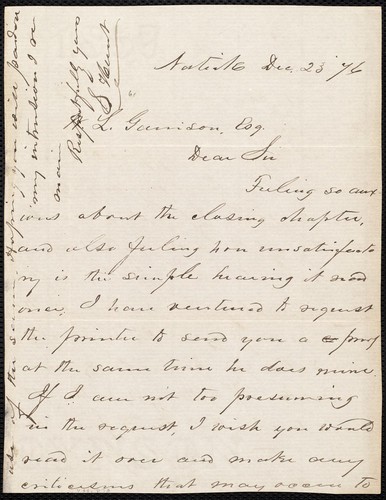 Natick Dec. 23 '76
W. L. Garrison, Esq.
Dear Sir
Feeling so anx
ious about the closing chapter,
and also feeling how unsatisfacto
ry is the simple hearing it read
once, I have ventured to request
the printer to send you a proof
at the same time he does mine.
If I am not too presuming
in the request, I wish you would
read it over and make any
criticisms that may occur to
use of the same, hoping you will pardon
my intrusion I re
main
Respectfully yours
S Hunt